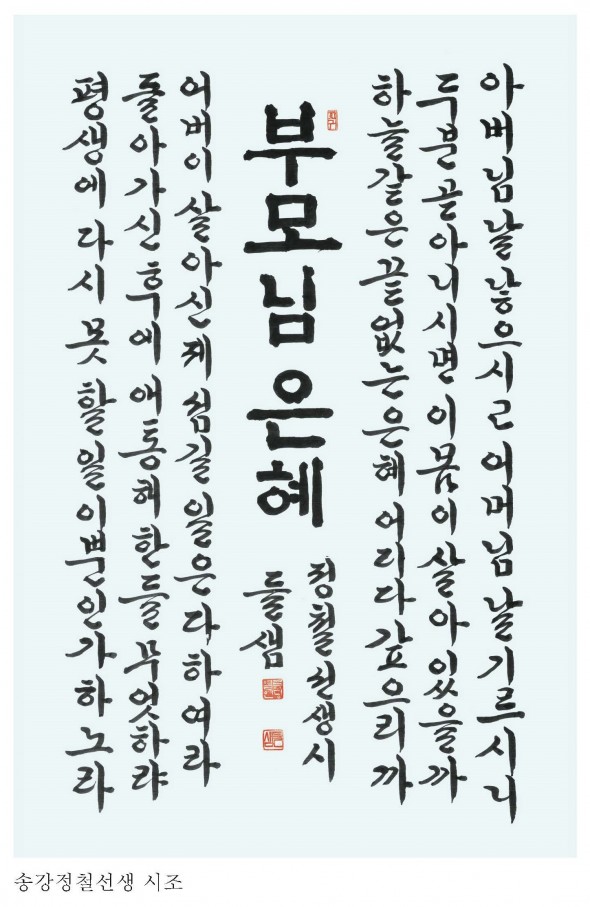 아버님날낳으시고어머님날기르시니
두분곧아니시면이몸이살아있을까
하늘같은끝없는은혜어디다갚으리까
부모님은혜
정철선생시
들샘
어버이살아신제섬길일은다하여라
돌아가신후에애통해한들무엇하랴
평생에다시못할일이뿐인가하노라
송강정철선생 시조